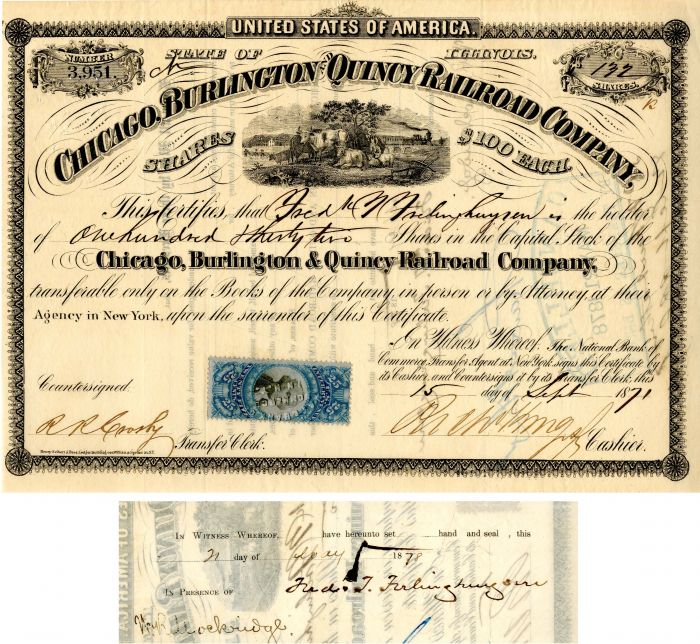 UNITED STATES OF AMERICA.
NUMBER
3,951.
STATE OF ILLINOIS.
132
SHARES.
CHICAGO, BURLINGTON AND QUINCY RAILROAD COMPANY,
SHARES $100 EACH.
This Certifies, that Fredk T Frelinghuysen is the holder
of One hundred & thirty two Shares in the Capital Stock of the
Chicago, Burlington & Quincy Railroad Company,
transferable only on the Books of the Company, in person or by Attorney, at their
Agency in New York, upon the surrender of this Certificate.
In Witness Whereof, The National Bank of
Commerce, Transfer Agent at New York, signs this Certificate by
its Cashier, and Countersigns it by its Transfer Clerk, this
15 day of Sept 1871
Countersigned.
R R Crosby Transfer Clerk.
Cashier.
IN WITNESS WHEREOF, have hereunto set hand and seal, this
day of 1878
IN PRESENCE OF Fredk T. Frelinghuysen
Mockridge